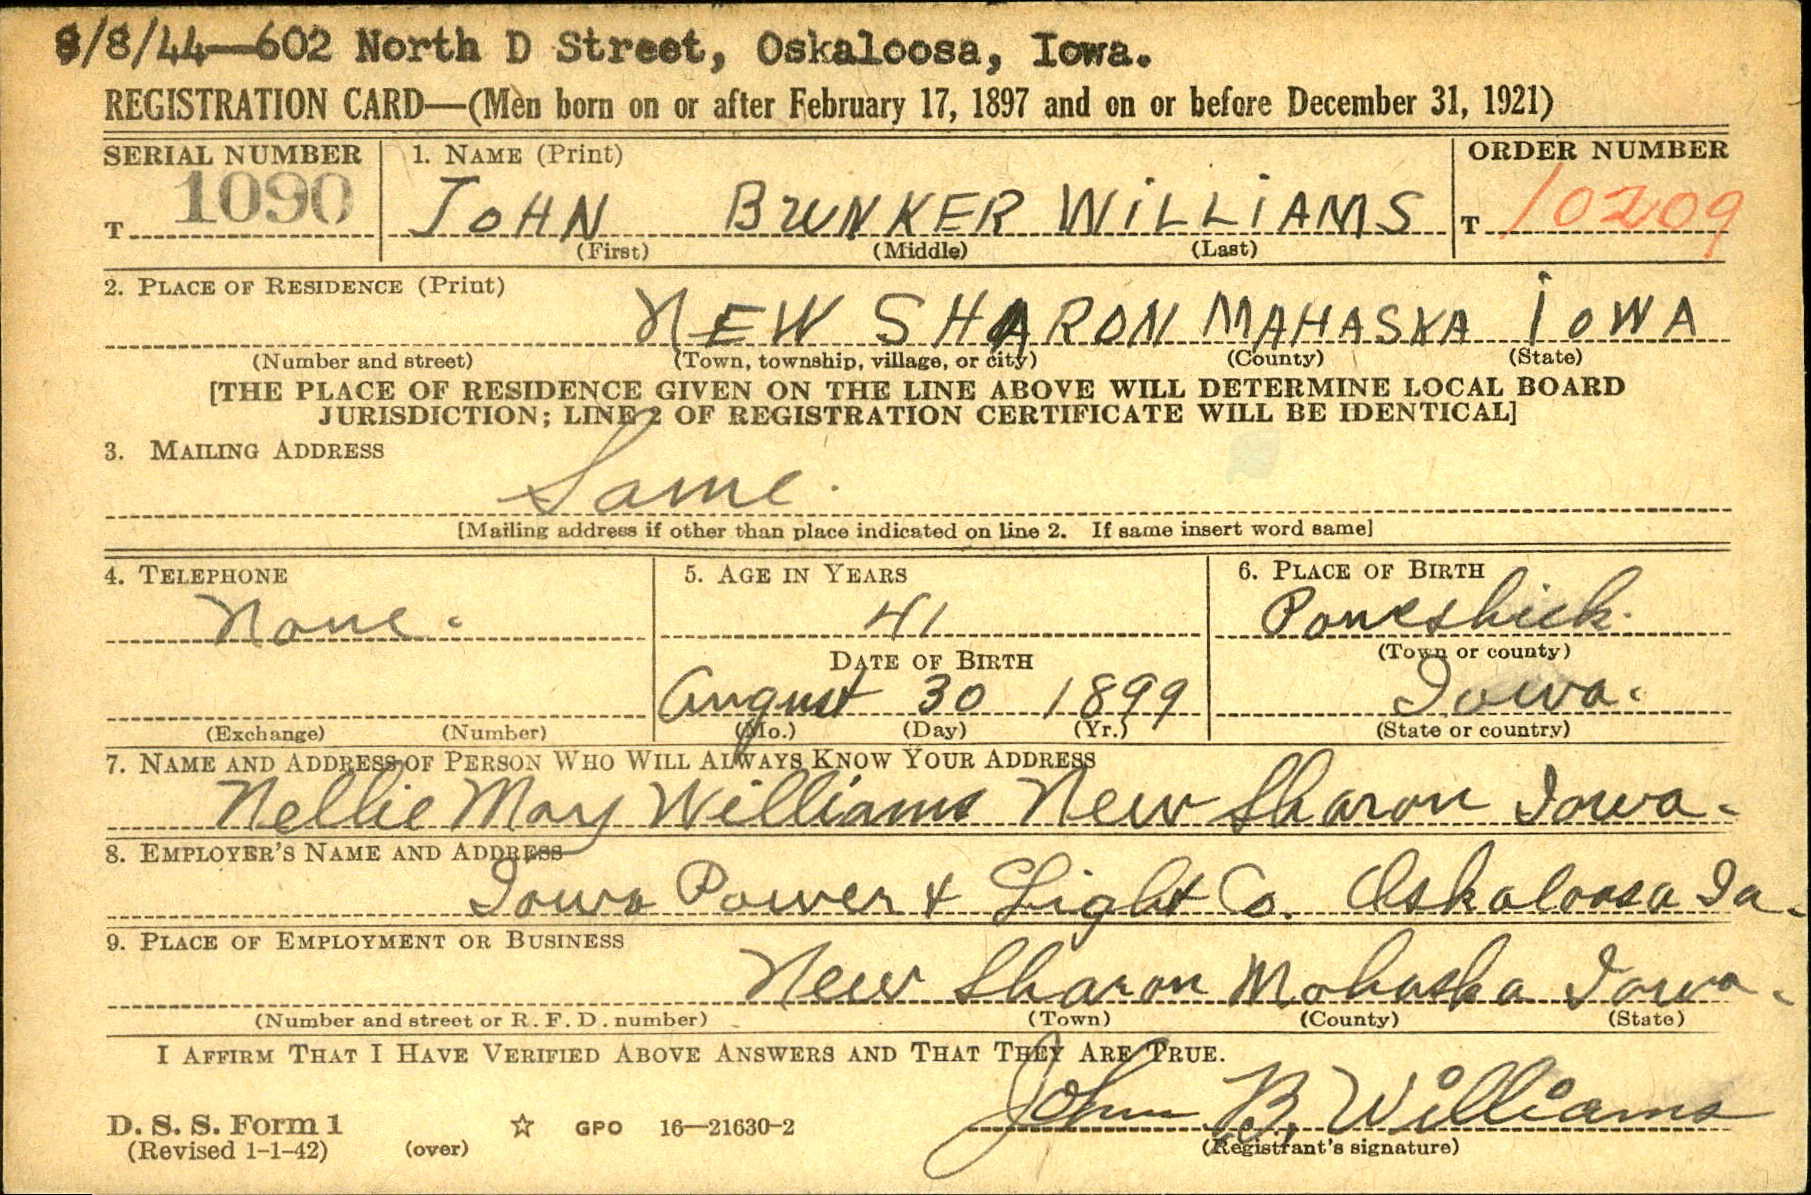 8/8/44—602 North D Street, Oskaloosa, Iowa.
REGISTRATION CARD—(Men born on or after February 17, 1897 and on or before December 31, 1921)
SERIAL NUMBER 1. NAME (Print) ORDER NUMBER
T 1090 JOHN BUNKER WILLIAMS T 10209
(First) (Middle) (Last)
2. PLACE OF RESIDENCE (Print)
NEW SHARON MAHASKA IOWA
(Number and street) (Town, township, village, or city) (County) (State)
[THE PLACE OF RESIDENCE GIVEN ON THE LINE ABOVE WILL DETERMINE LOCAL BOARD
JURISDICTION; LINE 2 OF REGISTRATION CERTIFICATE WILL BE IDENTICAL]
3. MAILING ADDRESS
Same.
[Mailing address if other than place indicated on line 2. If same insert word same]
4. TELEPHONE 5. AGE IN YEARS 6. PLACE OF BIRTH
None. 41 Poweshiek.
DATE OF BIRTH (Town or county)
August 30 1899 Iowa.
(Exchange) (Number) (Mo.) (Day) (Yr.) (State or country)
7. NAME AND ADDRESS OF PERSON WHO WILL ALWAYS KNOW YOUR ADDRESS
Nellie May Williams New Sharon Iowa.
8. EMPLOYER'S NAME AND ADDRESS
Iowa Power & Light Co. Oskaloosa Ia.
9. PLACE OF EMPLOYMENT OR BUSINESS
New Sharon Mahaska Iowa.
(Number and street or R. F. D. number) (Town) (County) (State)
I AFFIRM THAT I HAVE VERIFIED ABOVE ANSWERS AND THAT THEY ARE TRUE.
John B. Williams
D. S. S. Form 1 ☆ GPO 16—21630-2
(Revised 1-1-42) (over) (Registrant's signature)